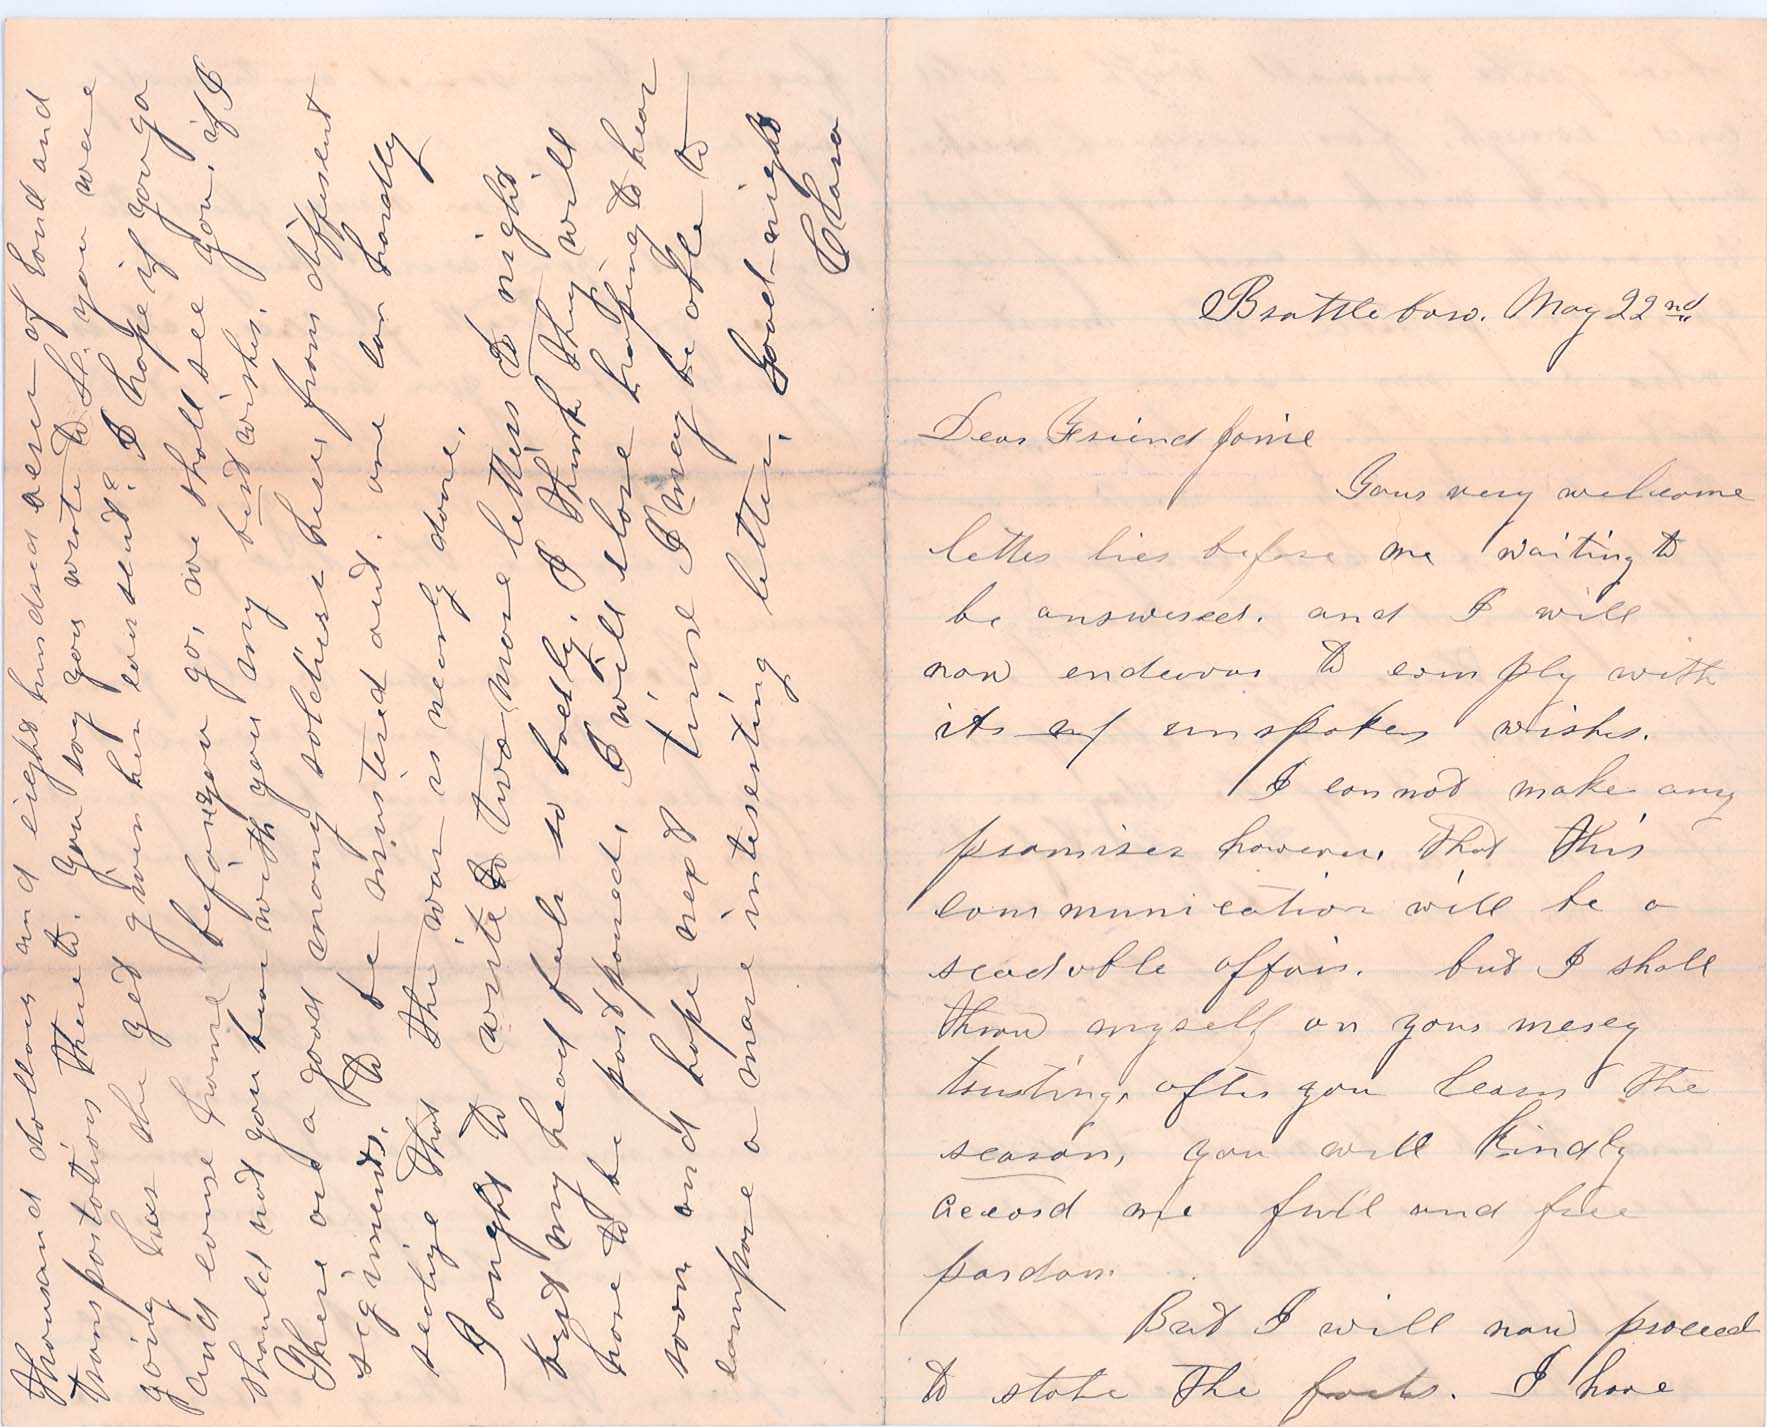 Brattleboro. May 22nd
Dear Friend Jamie
Your very welcome
letter lies before me waiting to
be answered. and I will
now endevor to comply with
its unspoken wishes.
I cannot make any
promises however, that this
communication will be a
readable affair. but I shall
throw myself on your mercy
trusting, after you learn the
reason, you will kindly
accord me full and free
pardon.
But I will now proceed
to state the facts. I have
thousand dollars and eight hundred acres of land and
transportation there to. You say you wrote to St. you were
going has she yet given her consent? I hope if you go
and come home before you go, we shall see you. if I
should not you bear with you my best wishes.
There are a good many soldiers here, from different
regiments. to be mustered out. one can hardly
realize that the war is nearly done.
I ought to write to two more letters to night
but my head feels so badly, I think they will
have to be postponed. I will close hoping to hear
soon and hope next time I may be able to
compose a more interesting letter. Good-night
Clara